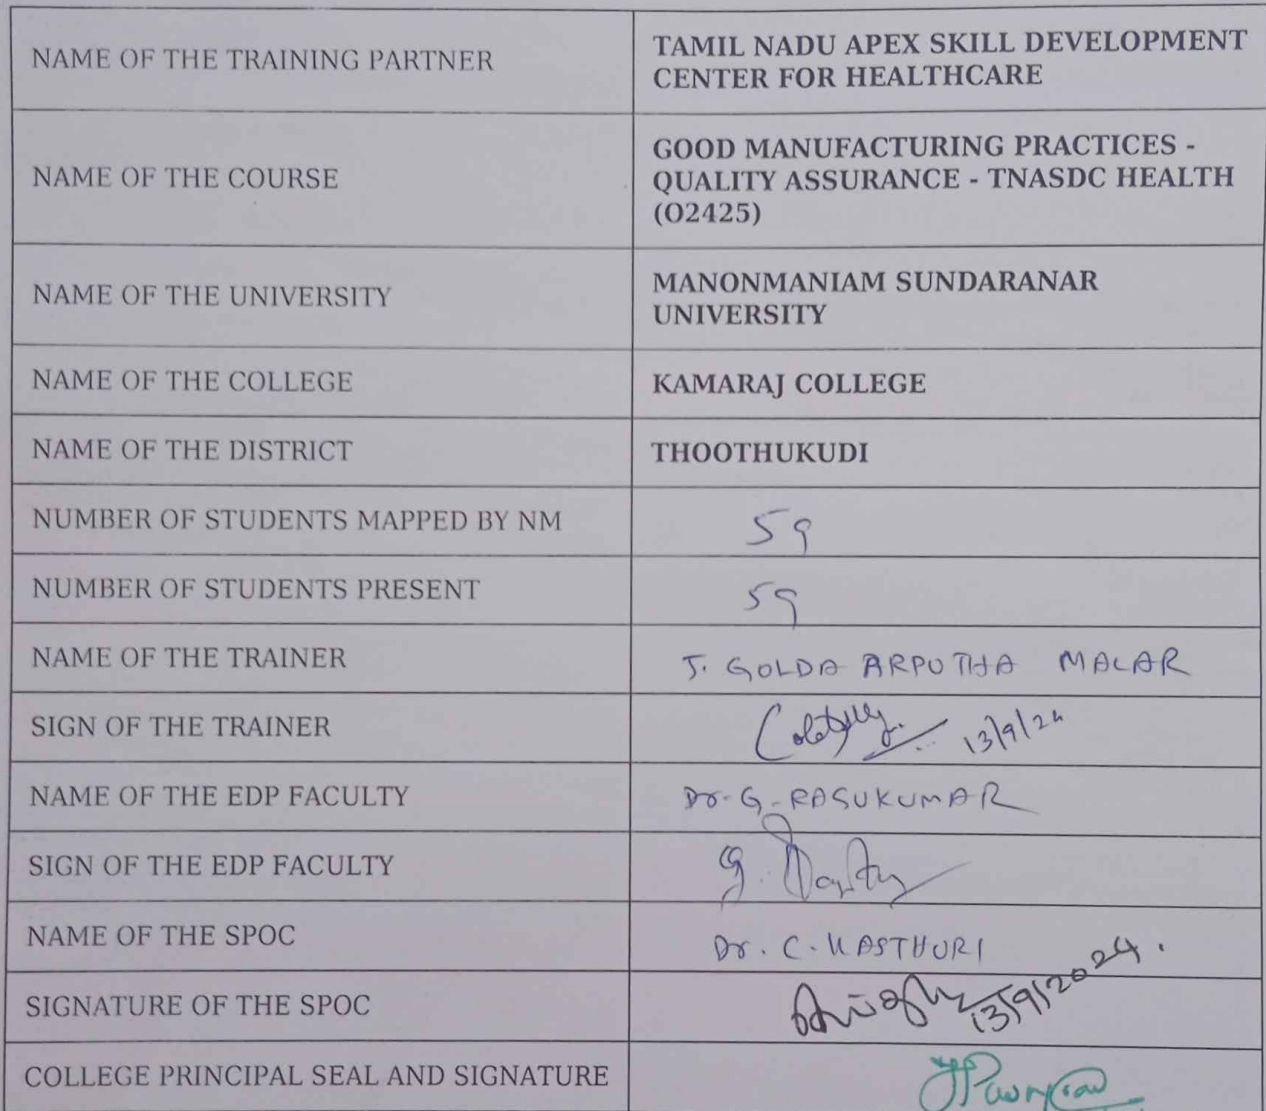 NAME OF THE TRAINING PARTNER
TAMIL NADU APEX SKILL DEVELOPMENT
CENTER FOR HEALTHCARE
NAME OF THE COURSE
GOOD MANUFACTURING PRACTICES -
QUALITY ASSURANCE - TNASDC HEALTH
(O2425)
NAME OF THE UNIVERSITY
MANONMANIAM SUNDARANAR
UNIVERSITY
NAME OF THE COLLEGE
KAMARAJ COLLEGE
NAME OF THE DISTRICT
THOOTHUKUDI
NUMBER OF STUDENTS MAPPED BY NM
59
NUMBER OF STUDENTS PRESENT
59
NAME OF THE TRAINER
J. GOLDA ARPUTHA MALAR
SIGN OF THE TRAINER
13/9/24
NAME OF THE EDP FACULTY
Dr. G. RASUKUMAR
SIGN OF THE EDP FACULTY
NAME OF THE SPOC
Dr. C. KASTHURI
SIGNATURE OF THE SPOC
13/9/2024.
COLLEGE PRINCIPAL SEAL AND SIGNATURE